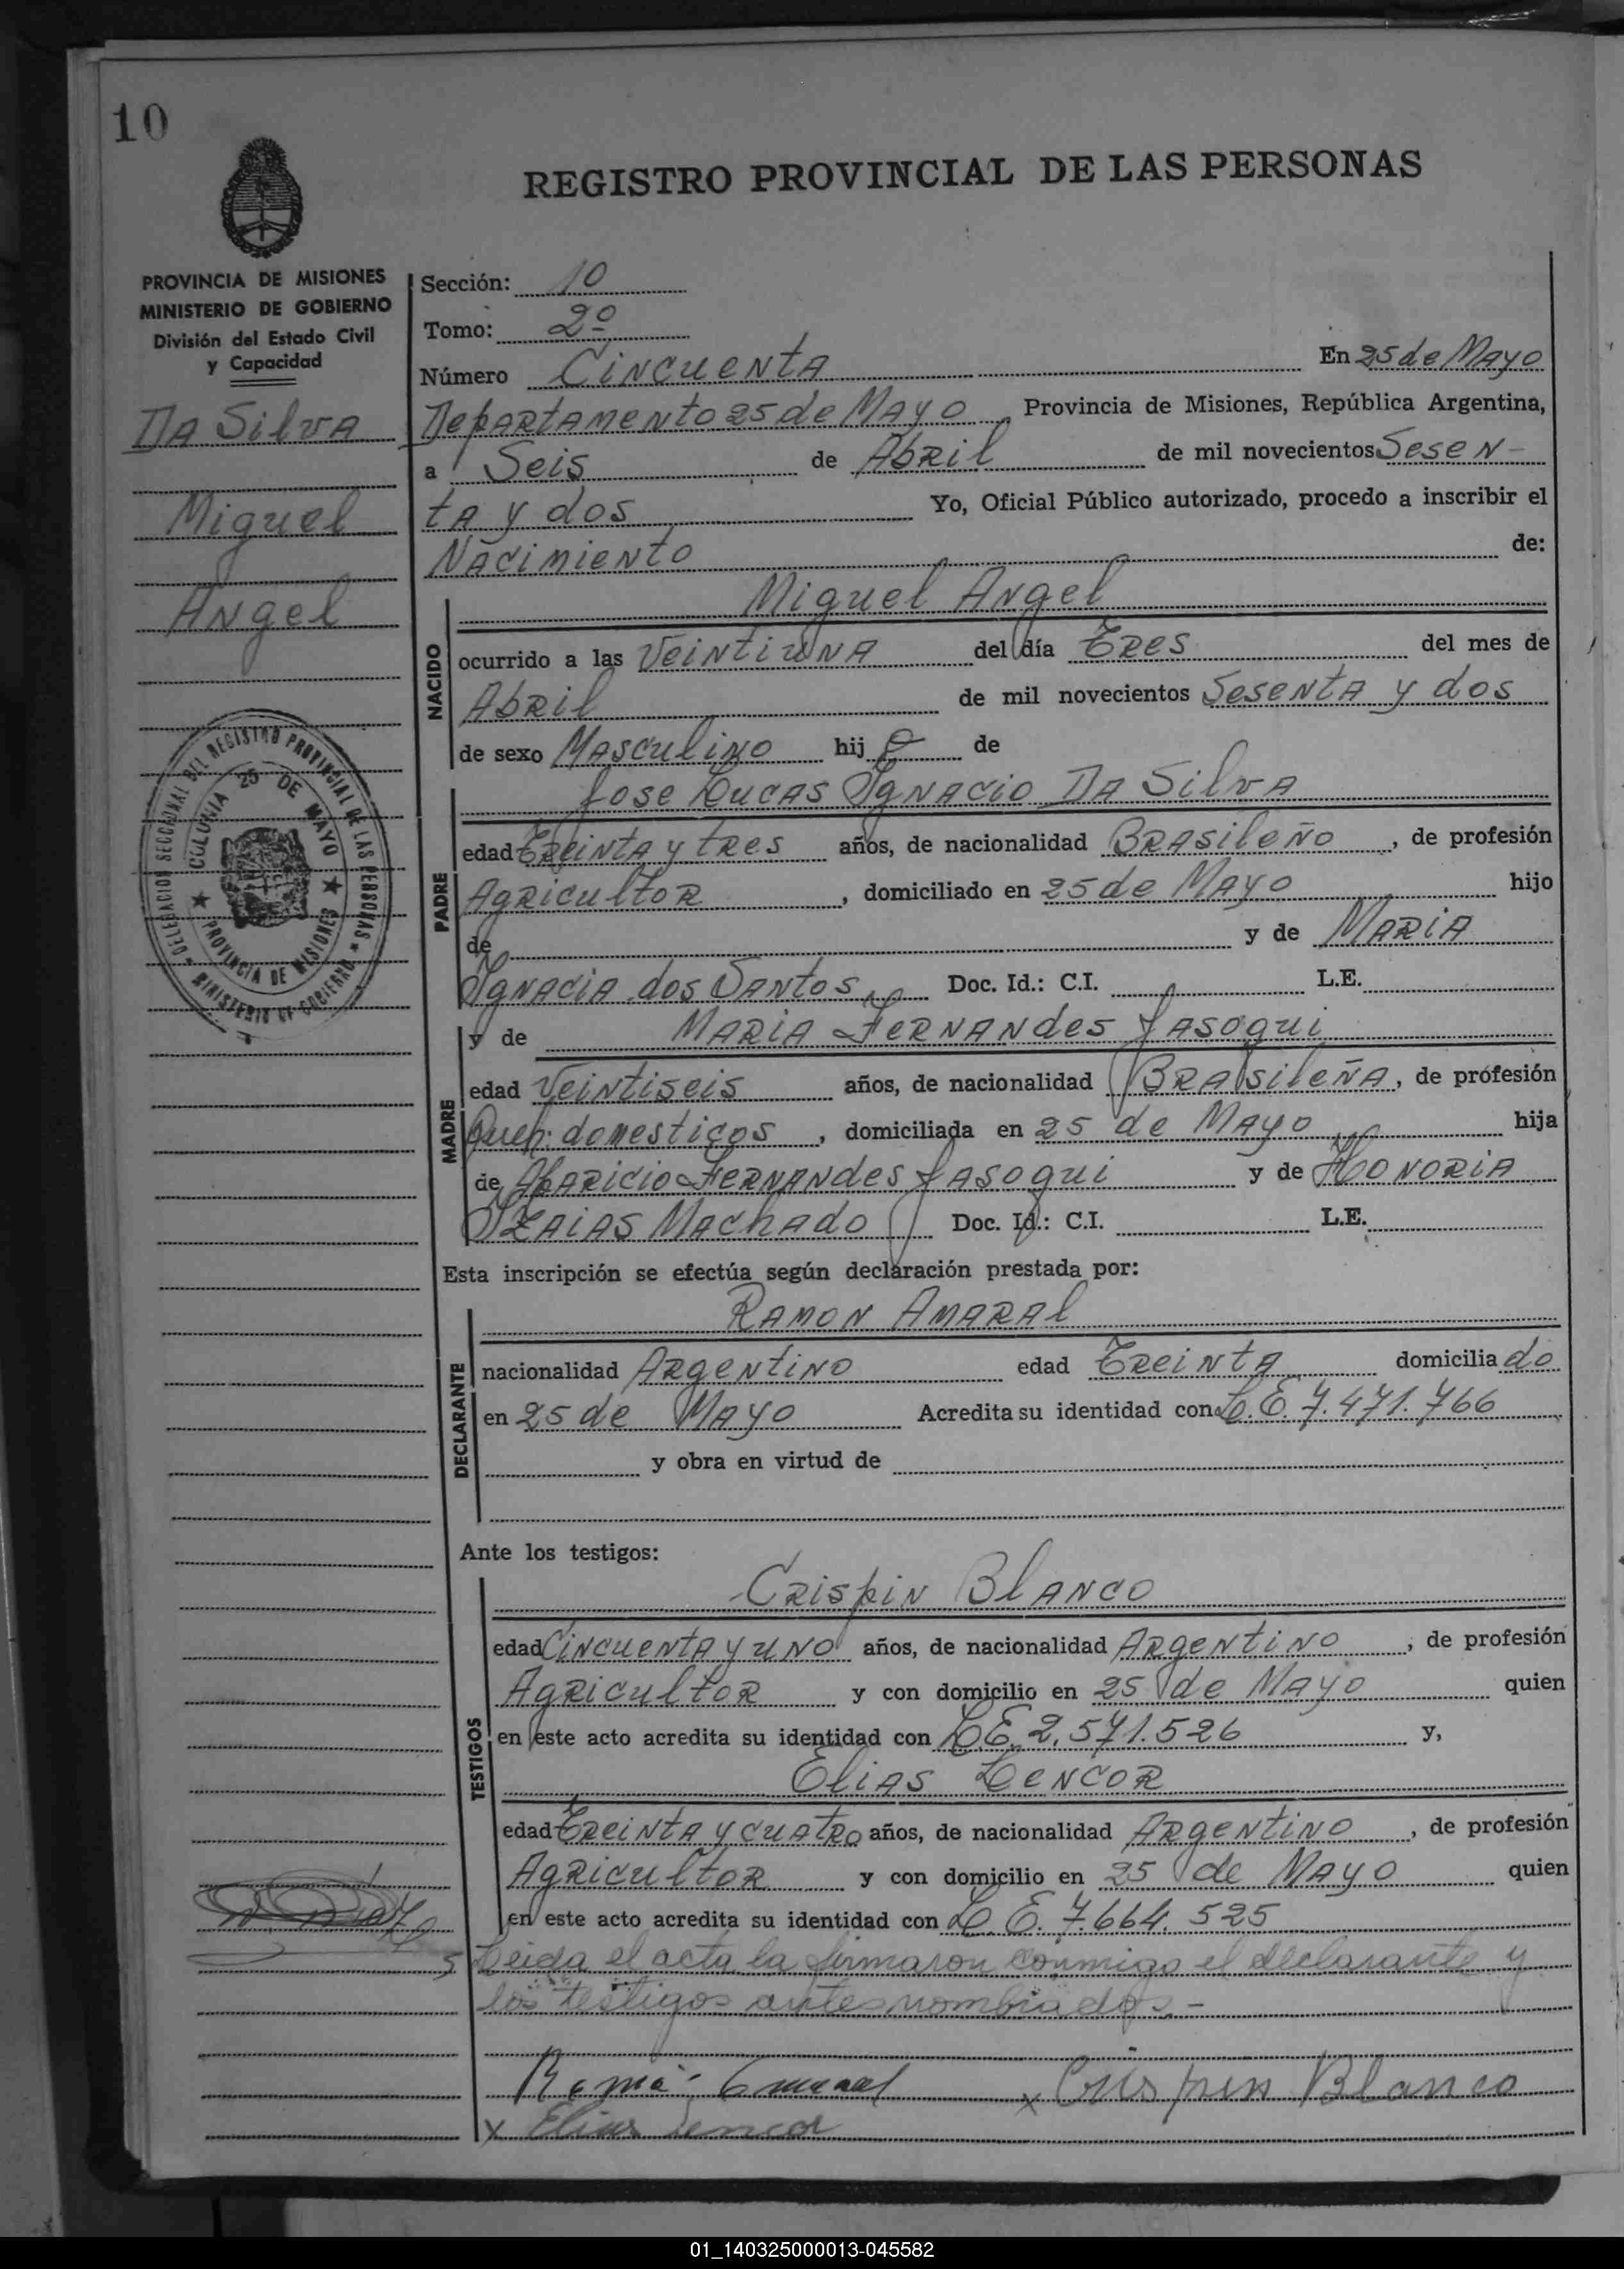 10
REGISTRO PROVINCIAL DE LAS PERSONAS
PROVINCIA DE MISIONES
MINISTERIO DE GOBIERNO
División del Estado Civil
y Capacidad
Da Silva
Miguel
Angel
DELEGACION SECCIONAL DEL REGISTRO PROVINCIAL DE LAS PERSONAS
MINISTERIO DE GOBIERNO
COLONIA 25 DE MAYO
PROVINCIA DE MISIONES
Sección: 10
Tomo: 2º
Número Cincuenta En 25 de Mayo
Departamento 25 de Mayo Provincia de Misiones, República Argentina,
a Seis de Abril de mil novecientos Sesen-
ta y dos Yo, Oficial Público autorizado, procedo a inscribir el
Nacimiento de:
NACIDO
Miguel Angel
ocurrido a las Veintiuna del día Tres del mes de
Abril de mil novecientos Sesenta y dos
de sexo Masculino hijo de
PADRE
Jose Lucas Ignacio Da Silva
edad Treinta y tres años, de nacionalidad Brasileño, de profesión
Agricultor, domiciliado en 25 de Mayo hijo
de y de Maria
Ignacia dos Santos Doc. Id.: C.I. L.E.
MADRE
y de Maria Fernandes Jasoqui
edad Veintiseis años, de nacionalidad Brasileña, de profesión
Queh. domesticos, domiciliada en 25 de Mayo hija
de Aparicio Fernandes Jasoqui y de Honoria
Izaias Machado Doc. Id.: C.I. L.E.
Esta inscripción se efectúa según declaración prestada por:
DECLARANTE
Ramon Amaral
nacionalidad Argentino edad Treinta domiciliado
en 25 de Mayo Acredita su identidad con L.E. 7.471.766
y obra en virtud de
Ante los testigos:
TESTIGOS
Crispin Blanco
edad Cincuenta y uno años, de nacionalidad Argentino, de profesión
Agricultor y con domicilio en 25 de Mayo quien
en este acto acredita su identidad con L.E. 2.571.526 y,
Elias Lencor
edad Treinta y cuatro años, de nacionalidad Argentino, de profesión
Agricultor y con domicilio en 25 de Mayo quien
en este acto acredita su identidad con L.E. 7.664.525
Leida el acta la firmaron conmigo el declarante y
los testigos antes nombrados.-
x Crispin Blanco
x Elias Lencor
01_140325000013-045582